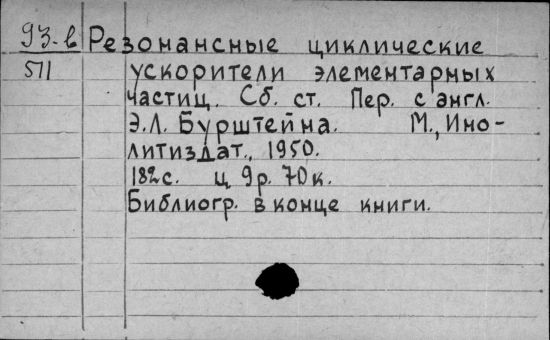 93-в Резонансные циклические
511 ускорители элементарных
частиц. Сб. ст. Пер. с англ.
Э.Л. Бурштейна. М., Ино-
литиздат., 1950.
182с. ц. 9р. 70к.
Библиогр. в конце книги.